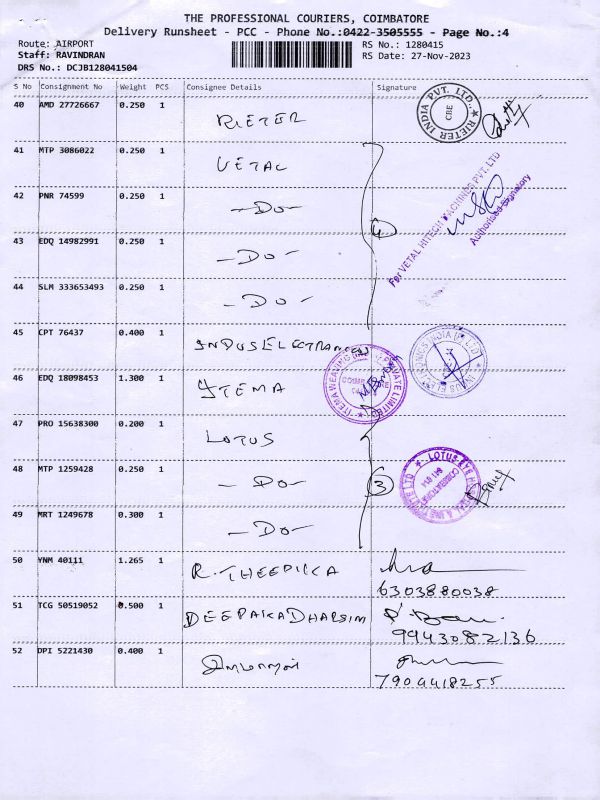 THE PROFESSIONAL COURIERS, COIMBATORE
Delivery Runsheet - PCC - Phone No.:0422-3505555 - Page No.:4
Route: AIRPORT
RS No.: 1280415
Staff: RAVINDRAN
RS Date: 27-Nov-2023
DRS No.: DCJB128041504
S No Consignment No Weight PCS Consignee Details Signature
40 AMD 27726667 0.250 1 RIETER
RIETER INDIA PVT. LTD. CBE
41 MTP 3086022 0.250 1 VETAL
42 PNR 74599 0.250 1 -DO-
43 EDQ 14982991 0.250 1 -DO-
4
For VETAL HITECH MACHINES PVT. LTD
Authorised Signatory
44 SLM 333653493 0.250 1 -DO-
45 CPT 76437 0.400 1 INDUS ELECTRANCES
46 EDQ 18098453 1.300 1 ITEMA
ITEMA WEAVING PRIVATE LIMITED
47 PRO 15638300 0.200 1 LOTUS
48 MTP 1259428 0.250 1 -DO-
3
LOTUS EYE HOSPITAL & INSTITUTE LTD
COIMBATORE
641 014
49 MRT 1249678 0.300 1 -DO-
50 YNM 40111 1.265 1 R. THEEPIKA
6303880038
51 TCG 50519052 0.500 1 DEEPAIKA DHARSIM
9943082136
52 DPI 5221430 0.400 1
7904418255